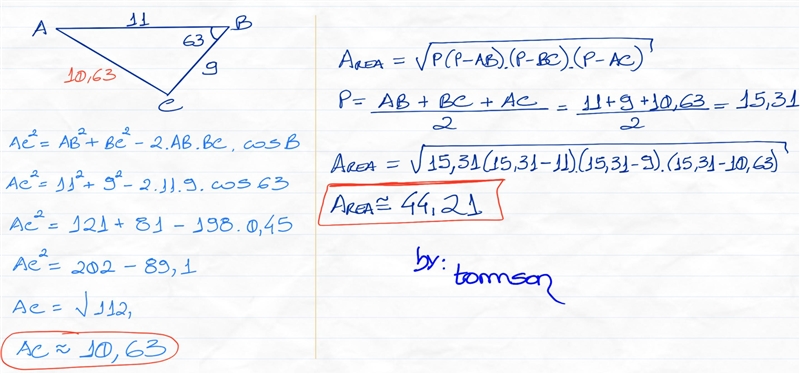 11
A B
63
10,63 9
C
AC² = AB² + BC² - 2.AB.BC. cosB
AC² = 11² + 9² - 2.11.9. cos63
AC² = 121 + 81 - 198.0,45
AC² = 202 - 89,1
AC = √112,
AC ≈ 10,63
AREA = √P(P-AB).(P-BC).(P-AC)
P = AB + BC + AC / 2 = 11+9+10,63 / 2 = 15,31
AREA = √15,31(15,31-11)(15,31-9).(15,31-10,63)
AREA ≅ 44,21
by:
tomson